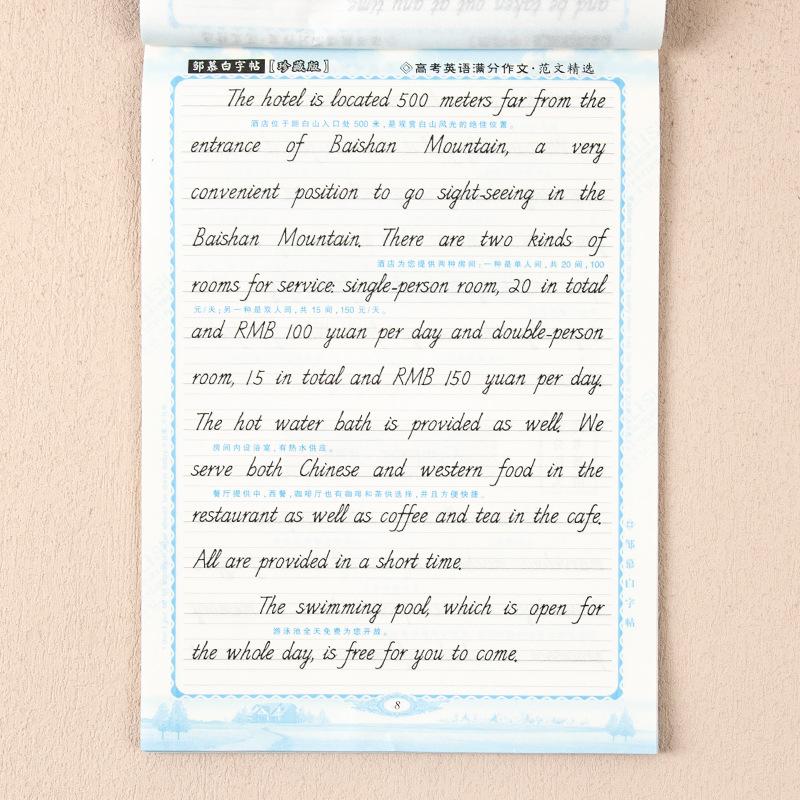 and be taken out at any time
邹慕白字帖【珍藏版】
高考英语满分作文·范文精选
The hotel is located 500 meters far from the
酒店位于距白山入口处 500 米，是观赏白山风光的绝佳位置。
entrance of Baishan Mountain, a very
convenient position to go sight-seeing in the
Baishan Mountain. There are two kinds of
酒店为您提供两种房间：一种是单人间，共 20 间，100
rooms for service: single-person room, 20 in total
元/天；另一种是双人间，共 15 间，150 元/天。
and RMB 100 yuan per day and double-person
room, 15 in total and RMB 150 yuan per day.
The hot water bath is provided as well. We
房间内设浴室，有热水供应。
serve both Chinese and western food in the
餐厅提供中、西餐，咖啡厅也有咖啡和茶供选择，并且方便快捷。
restaurant as well as coffee and tea in the cafe.
All are provided in a short time.
The swimming pool, which is open for
游泳池全天免费为您开放。
the whole day, is free for you to come.
邹慕白字帖
8